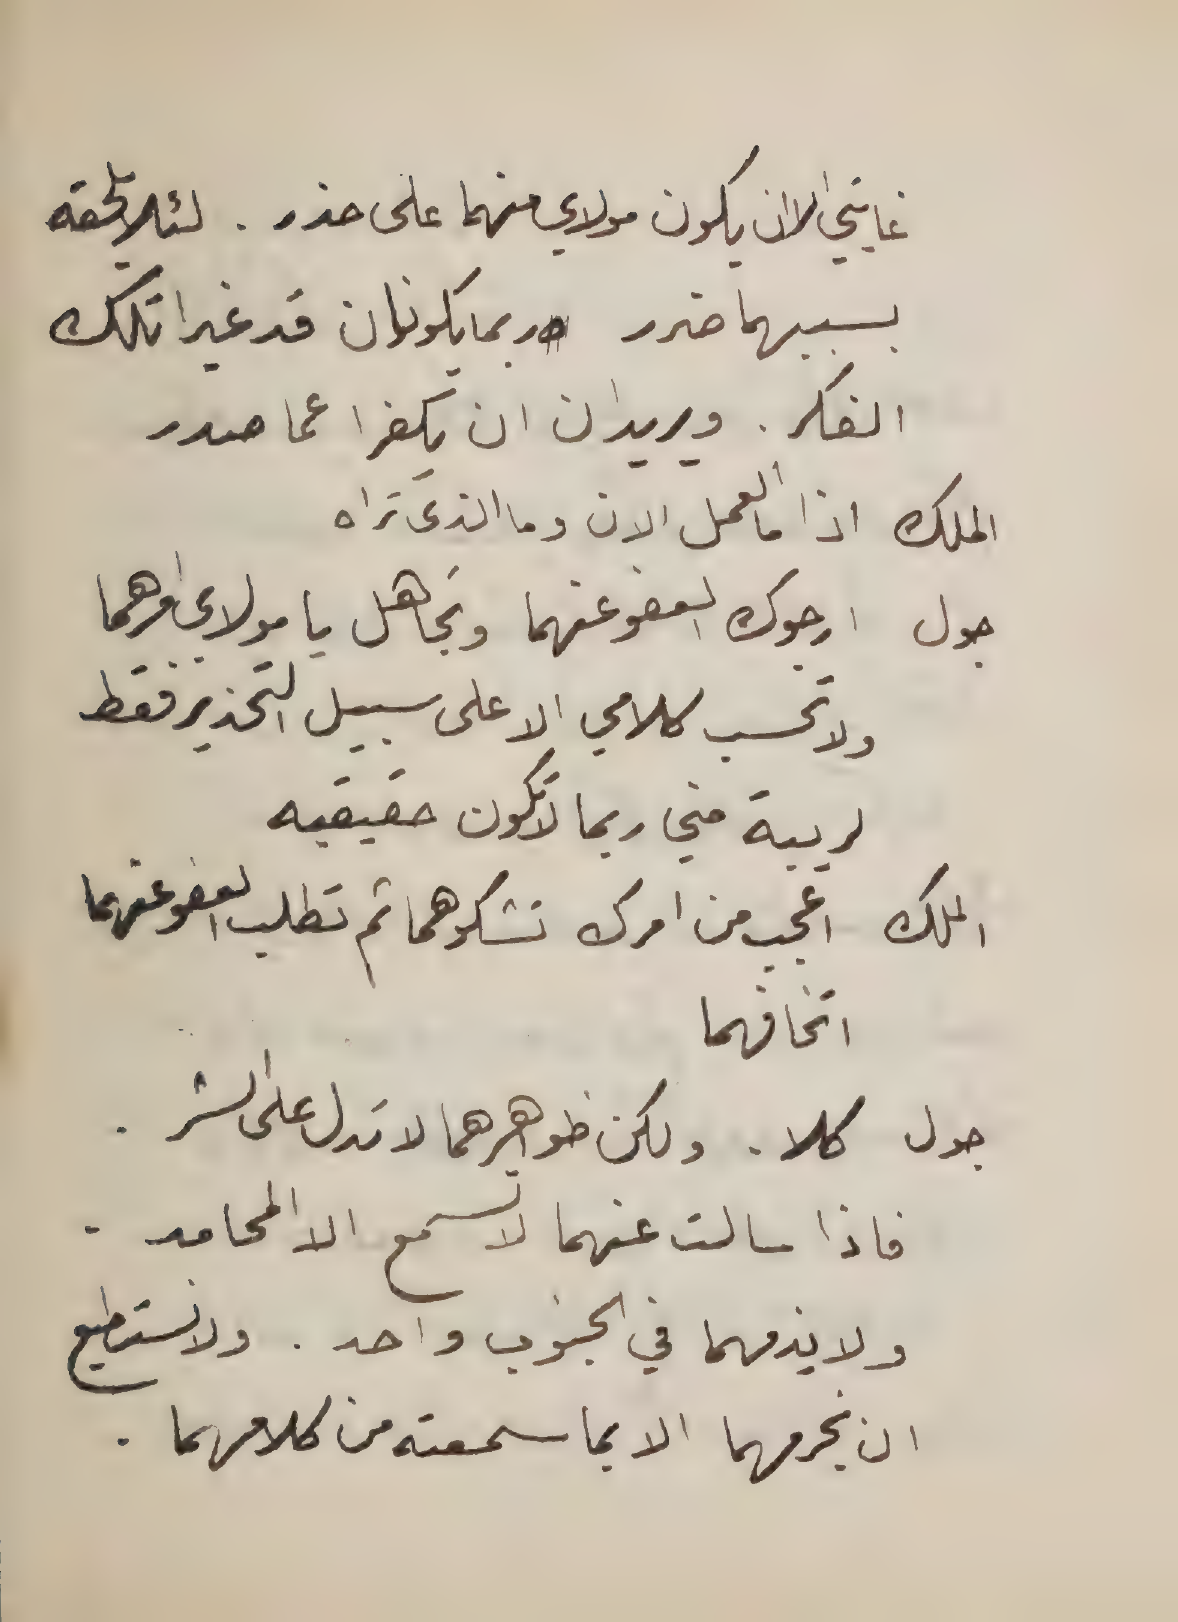 غايتي الان يكون مولاي منهما على حذر . لئلا يلحقه
بسببهما ضرر وربما يكونان قد غيرا تلك
الفكر . ويريدان ان يكفرا عما صدر
الملك اذا ما العمل الان وما الذي تراه
جول ارجوك العفو عنهما وتجاهل يا مولاي امرهما
ولا تحسب كلامي الا على سبيل التحذير فقط
لريبة مني ربما لا تكون حقيقيه
الملك اعجب من امرك تشكوهما ثم تطلب العفو عنهما
اتخافهما
جول كلا . ولكن ظواهرهما لا تدل على الشر .
فاذا سالت عنهما لا تسمع الا المحامد .
ولا يذمهما في الجنوب واحد . ولا نستطيع
ان نجرمهما الا بما سمعته من كلامهما .